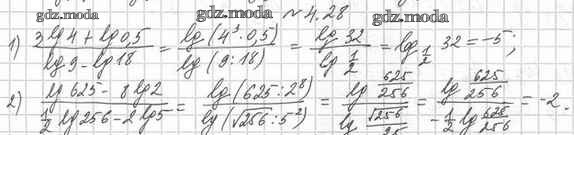 gdz.moda gdz.moda № 4.28 gdz.moda
1) \frac{3 lg 4 + lg 0,5}{lg 9 - lg 18} = \frac{lg (4³ · 0,5)}{lg (9 : 18)} = \frac{lg 32}{lg \frac{1}{2}} = log_{\frac{1}{2}} 32 = -5;
2) \frac{lg 625 - 8 lg 2}{\frac{1}{2} lg 256 - 2 lg 5} = \frac{lg (625 : 2⁸)}{lg (√256 : 5²)} = \frac{lg \frac{625}{256}}{lg \frac{√256}{25}} = \frac{lg \frac{625}{256}}{-\frac{1}{2} lg \frac{625}{256}} = -2.